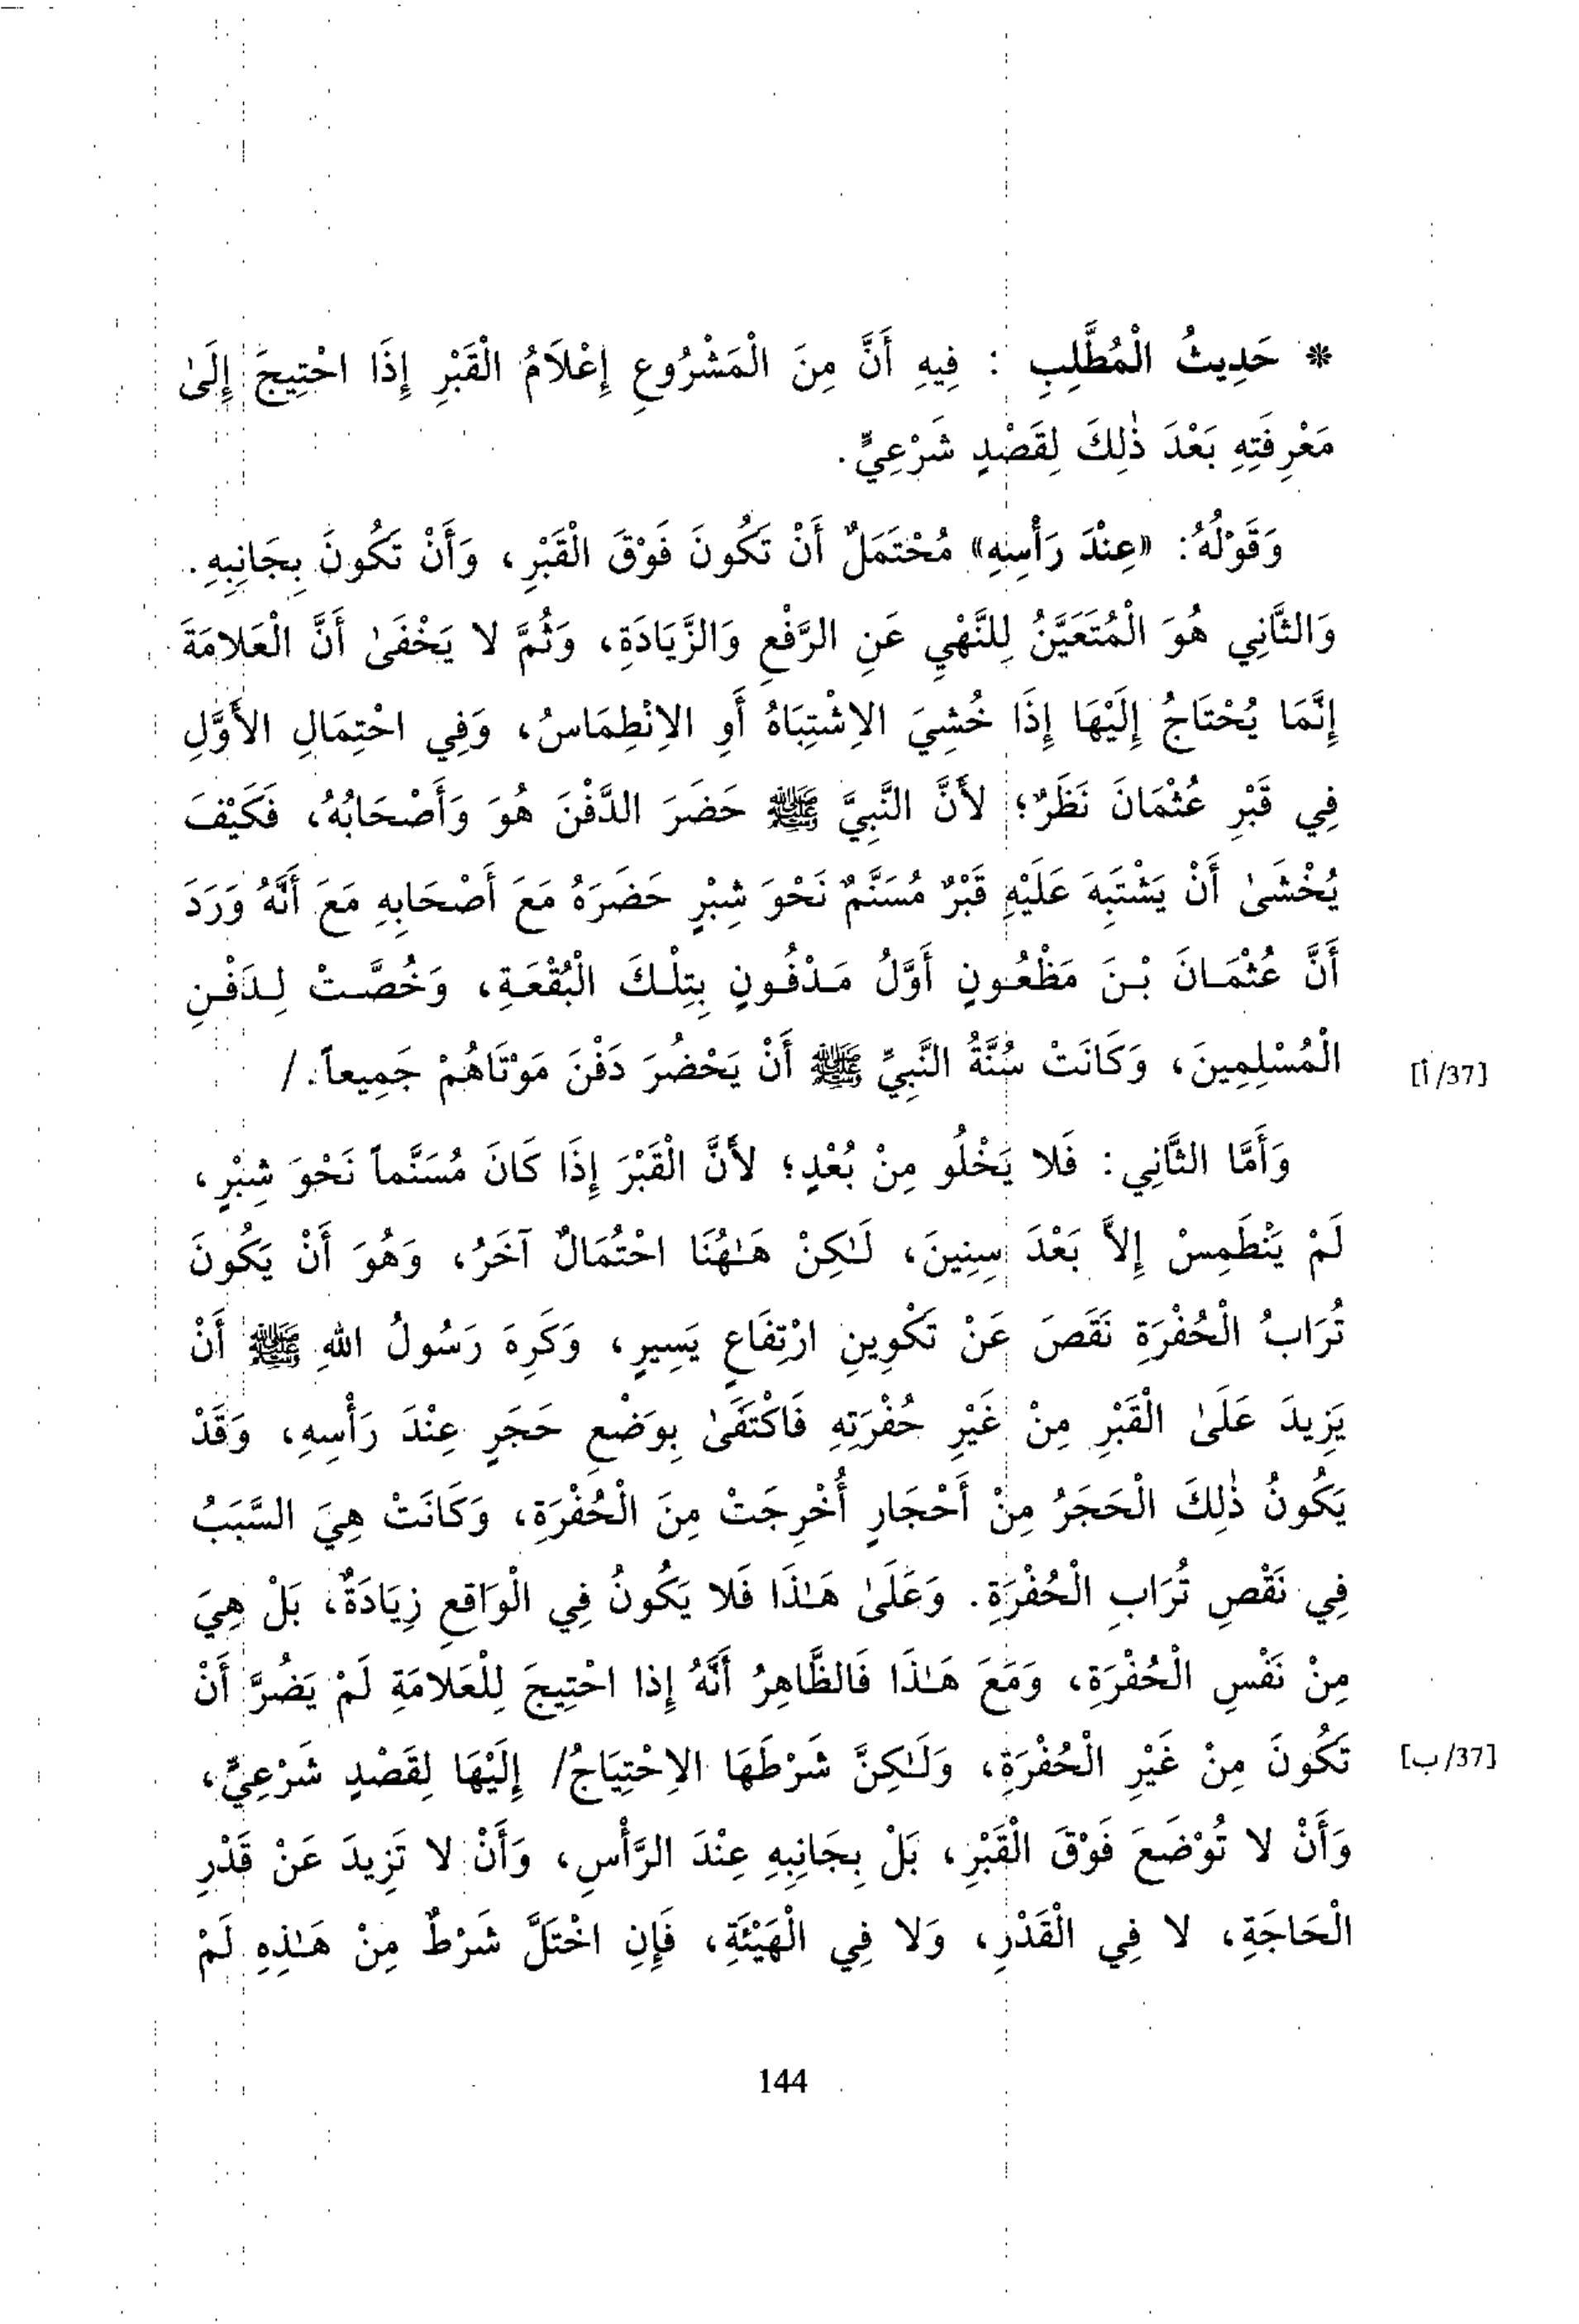 * حَدِيثُ الْمُطَّلِبِ : فِيهِ أَنَّ مِنَ الْمَشْرُوعِ إِعْلَامُ الْقَبْرِ إِذَا احْتِيجَ إِلَىٰ
مَعْرِفَتِهِ بَعْدَ ذٰلِكَ لِقَصْدٍ شَرْعِيٍّ.
وَقَوْلُهُ: «عِنْدَ رَأْسِهِ» مُحْتَمَلٌ أَنْ تَكُونَ فَوْقَ الْقَبْرِ، وَأَنْ تَكُونَ بِجَانِبِهِ.
وَالثَّانِي هُوَ الْمُتَعَيَّنُ لِلنَّهْيِ عَنِ الرَّفْعِ وَالزَّيَادَةِ، وَثُمَّ لا يَخْفَىٰ أَنَّ الْعَلامَةَ
إِنَّمَا يُحْتَاجُ إِلَيْهَا إِذَا خُشِيَ الاِشْتِبَاهُ أَوِ الاِنْطِمَاسُ، وَفِي احْتِمَالِ الأَوَّلِ
فِي قَبْرِ عُثْمَانَ نَظَرٌ؛ لأَنَّ النَّبِيَّ ﷺ حَضَرَ الدَّفْنَ هُوَ وَأَصْحَابُهُ، فَكَيْفَ
يُخْشَىٰ أَنْ يَشْتَبِهَ عَلَيْهِ قَبْرٌ مُسَنَّمٌ نَحْوَ شِبْرٍ حَضَرَهُ مَعَ أَصْحَابِهِ مَعَ أَنَّهُ وَرَدَ
أَنَّ عُثْمَـانَ بْـنَ مَظْعُـونٍ أَوَّلُ مَـدْفُـونٍ بِتِلْـكَ الْبُقْعَـةِ، وَخُصَّـتْ لِـدَفْـنِ
الْمُسْلِمِينَ، وَكَانَتْ سُنَّةُ النَّبِيِّ ﷺ أَنْ يَحْضُرَ دَفْنَ مَوْتَاهُمْ جَمِيعاً. /
[37/ أ]
وَأَمَّا الثَّانِي: فَلا يَخْلُو مِنْ بُعْدٍ؛ لأَنَّ الْقَبْرَ إِذَا كَانَ مُسَنَّماً نَحْوَ شِبْرٍ،
لَمْ يَنْطَمِسْ إِلاَّ بَعْدَ سِنِينَ، لَـٰكِنْ هَـٰهُنَا احْتُمَالٌ آخَرُ، وَهُوَ أَنْ يَكُونَ
تُرَابُ الْحُفْرَةِ نَقَصَ عَنْ تَكْوِينِ ارْتِفَاعٍ يَسِيرٍ، وَكَرِهَ رَسُولُ اللهِ ﷺ أَنْ
يَزِيدَ عَلَىٰ الْقَبْرِ مِنْ غَيْرِ حُفْرَتِهِ فَاكْتَفَىٰ بِوَضْعِ حَجَرٍ عِنْدَ رَأْسِهِ، وَقَدْ
يَكُونُ ذٰلِكَ الْحَجَرُ مِنْ أَحْجَارٍ أُخْرِجَتْ مِنَ الْحُفْرَةِ، وَكَانَتْ هِيَ السَّبَبُ
فِي نَقْصِ تُرَابِ الْحُفْرَةِ. وَعَلَىٰ هَـٰذَا فَلا يَكُونُ فِي الْوَاقِعِ زِيَادَةٌ، بَلْ هِيَ
مِنْ نَفْسِ الْحُفْرَةِ، وَمَعَ هَـٰذَا فَالظَّاهِرُ أَنَّهُ إِذا احْتِيجَ لِلْعَلامَةِ لَمْ يَضُرَّ أَنْ
تَكُونَ مِنْ غَيْرِ الْحُفْرَةِ، وَلَـٰكِنَّ شَرْطَهَا الاِحْتِيَاجُ/ إِلَيْهَا لِقَصْدٍ شَرْعِيٍّ،
[37/ ب]
وَأَنْ لا تُوْضَعَ فَوْقَ الْقَبْرِ، بَلْ بِجَانِبِهِ عِنْدَ الرَّأْسِ، وَأَنْ لا تَزِيدَ عَنْ قَدْرِ
الْحَاجَةِ، لا فِي الْقَدْرِ، وَلا فِي الْهَيْئَةِ، فَإِنِ اخْتَلَّ شَرْطٌ مِنْ هَـٰذِهِ لَمْ
144